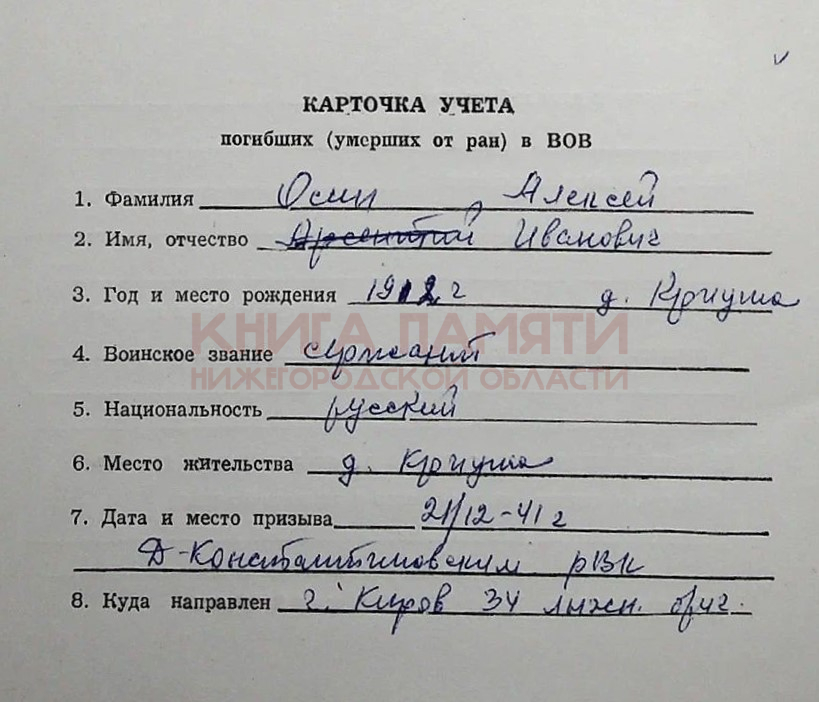 КАРТОЧКА УЧЕТА
погибших (умерших от ран) в ВОВ
1. Фамилия Осин Алексей
2. Имя, отчество Иванович
3. Год и место рождения 1912 г д. Криуша
КНИГА ПАМЯТИ
4. Воинское звание сержант
НИЖЕГОРОДСКОЙ ОБЛАСТИ
5. Национальность русский
6. Место жительства д. Криуша
7. Дата и место призыва 21/12-41 г
Д-Константиновским РВК
8. Куда направлен г. Киров 34 лыжн. бриг.